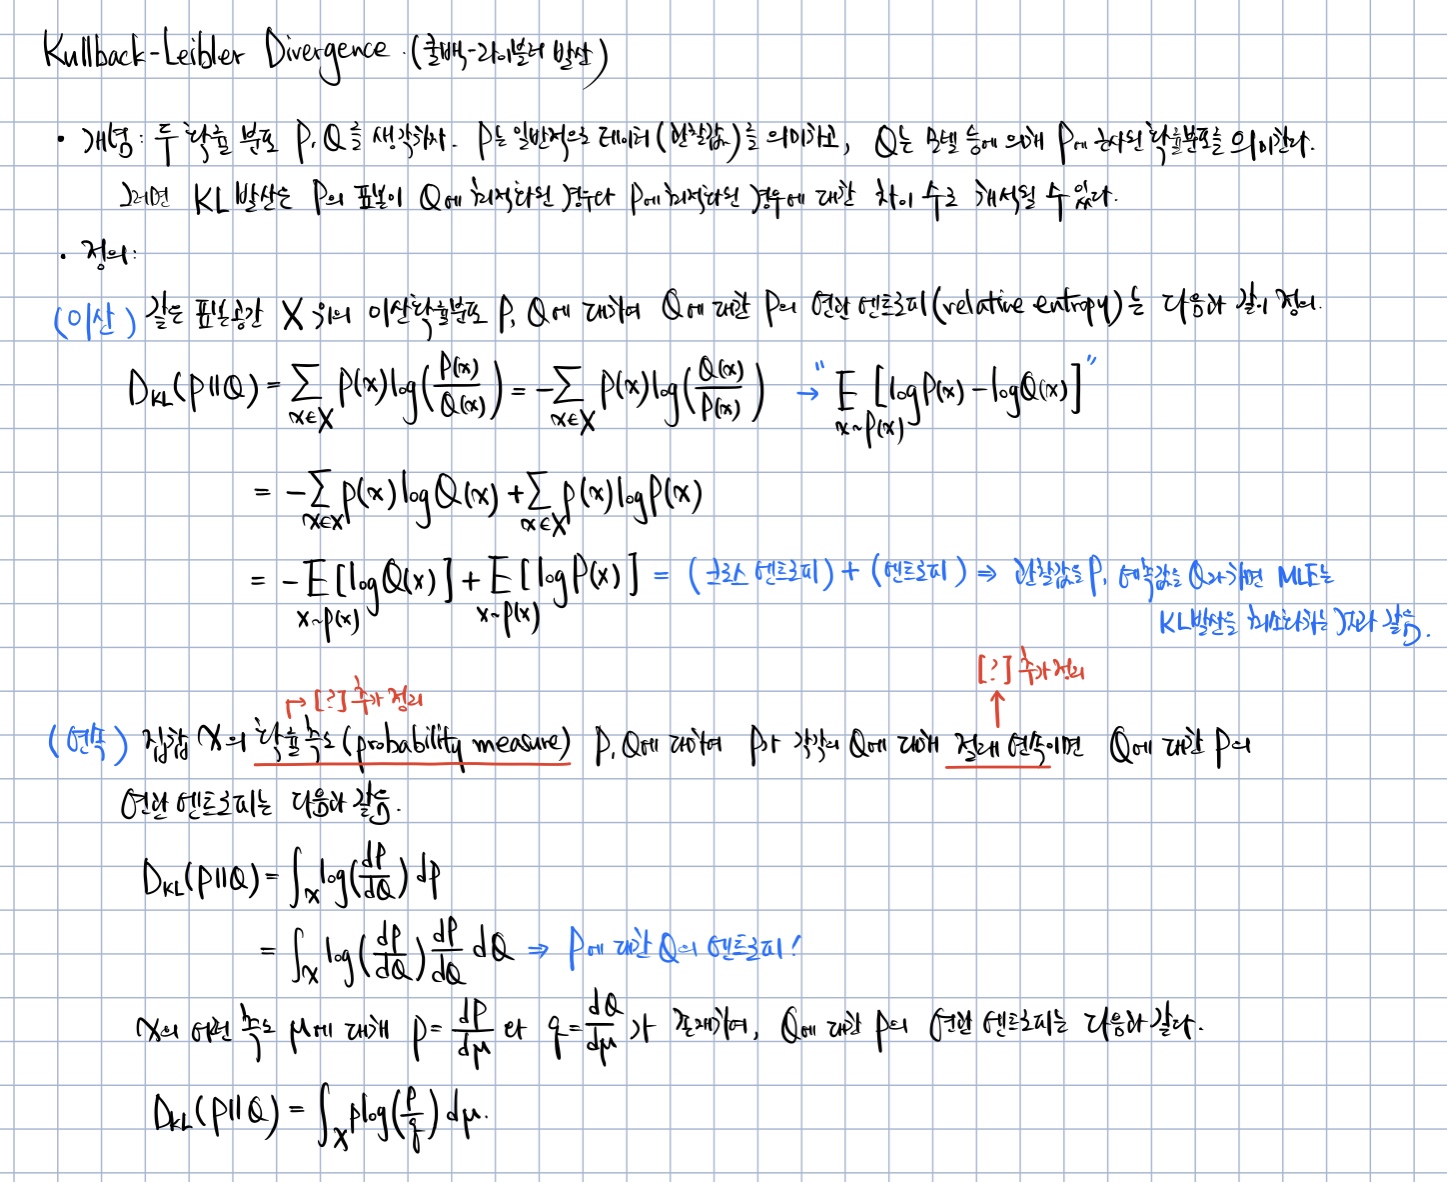 Kullback-Leibler Divergence. (쿨백-라이블러 발산)
• 개념: 두 확률 분포 P, Q를 생각하자. P는 일반적으로 데이터(관찰값)를 의미하고, Q는 모델 등에 의해 P에 근사된 확률분포를 의미한다.
그러면 KL 발산은 P의 표본이 Q에 최적화된 경우와 P에 최적화된 경우에 대한 차이 수로 해석될 수 있다.
• 정의:
(이산) 같은 표본공간 X 위의 이산확률분포 P, Q에 대하여 Q에 대한 P의 연관 엔트로피(relative entropy)는 다음과 같이 정의.
D_KL(P||Q) = ∑_{x∈X} P(x)log(P(x)/Q(x)) = -∑_{x∈X} P(x)log(Q(x)/P(x)) → "E_{x~P(x)}[logP(x) - logQ(x)]"
= -∑_{x∈X} P(x)logQ(x) + ∑_{x∈X} P(x)logP(x)
= -E_{x~P(x)}[logQ(x)] + E_{x~P(x)}[logP(x)] = (크로스 엔트로피) + (엔트로피) ⇒ 관찰값을 P, 예측값을 Q라 하면 MLE는
KL발산을 최소화하는 것과 같음.
[?] 추가 정리
↱ [?] 추가 정리
(연속) 집합 X의 확률 측도(probability measure) P, Q에 대하여 P가 각각의 Q에 대해 절대 연속이면 Q에 대한 P의
연관 엔트로피는 다음과 같음.
D_KL(P||Q) = ∫_X log(dP/dQ) dP
= ∫_X log(dP/dQ) dP/dQ dQ ⇒ P에 대한 Q의 엔트로피!
X의 어떤 측도 μ에 대해 p = dP/dμ 와 q = dQ/dμ 가 존재하여, Q에 대한 P의 연관 엔트로피는 다음과 같다.
D_KL(P||Q) = ∫_X p log(p/q) dμ.